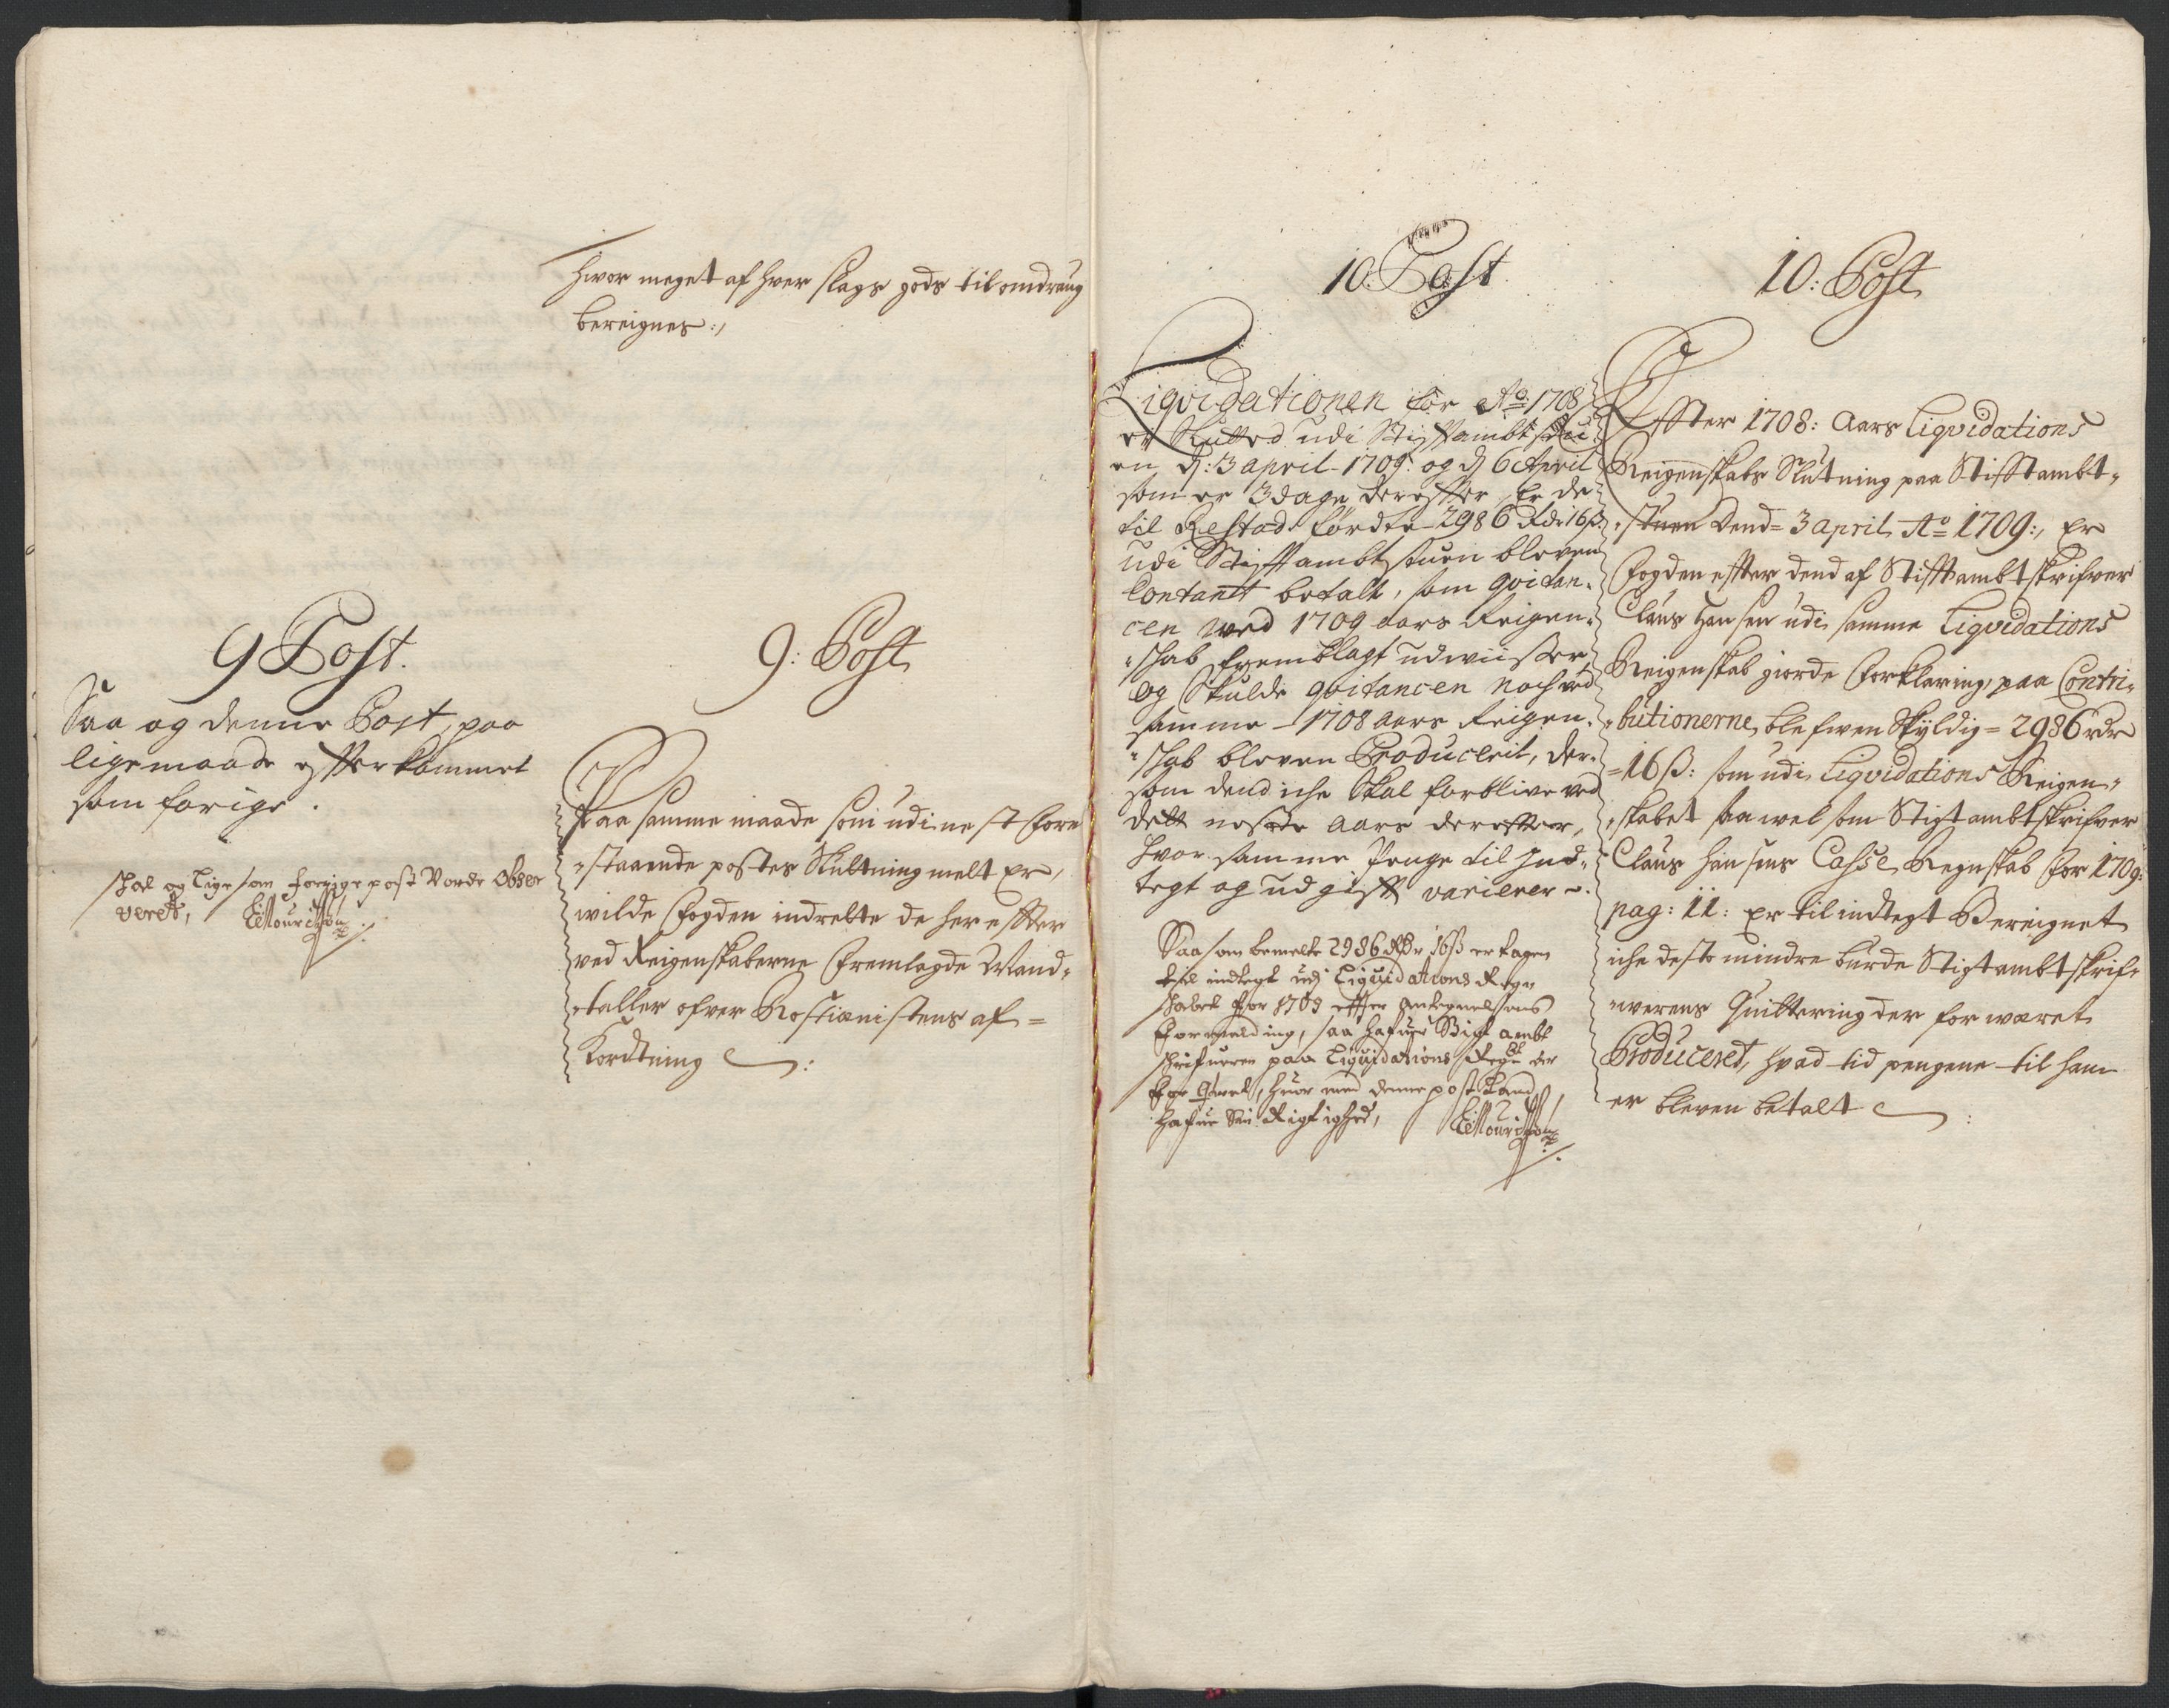 hvor meget af hver slags gods til omdraug
bereignes:,
9 Post.
Saa og denne Post, paa
ligemaade efterkommet
som forige.
skal og lige som forige post vorde obser
veret,
9: Post
Paa samme maade som udi nest fore
staaende postes Slutning melt er,
wilde fogden indrette de her effter
ved Reigenskaberne fremlagde Mand,,
,,taller ofver Rostienistens af=
Kordtning
10. Post
Liqvidationen for Ao 1708
er Slutted udi Stiftambtstu
en d: 3 april 1709. og dj 6 April
som er 3 dage dereffter, er de
til Restads førdte 2986 Rdr 16 ß.
udi Stiftambtstuen bleven
Contant betalt, som qvitan,,
cen wed 1709 aars Reigen,,
,,skab fremblagt udwiiser,
og Skulde qvitancen noch ved
samme 1708 aars Reigen,,
,,skab bleven Producerit, der,,
som dend iche Skal forblive ved
dett neste aars dereffter,
hvor samme Penge til Ind,,
tegt og udgift varierer.
Saasom bemelte 2986 Rdr 16ß er tagen
til indtegt udj Liquidations Regn
skabet for 1708 effter antegnelsens
formelding, saa hafuer Stigt ambt
skrifueren paa Liquidations Regn der
for qvit., huor med denne post kand
hafue sin Rigtighed,
10: Post
Effter 1708: Aars Liqvidations
Reigenskabs Slutning paa Stifftambt,,
,,stuen Dend= 3 april Ao 1709:, er
Fogden effter dend af Stifftambtskrifver
Claus Hansen udi samme Liqvidations
Reigenskab giorde forklaring, paa Contri,,
,,butionerne, blefwen Skyldig= 2986 rdr
=16 ß: som udi Liqvidations Reigen,,
,,skabet saa wel som Stigtambtskrifver
Claus Hansens Casse Regnskab for 1709:
pag: 11: er til indtegt Bereignet
iche desto mindre burde Stigtambtskrif,,
,,werens Quittering der for wæret
Produceret, hvad tid pengene til ham
er bleven betalt